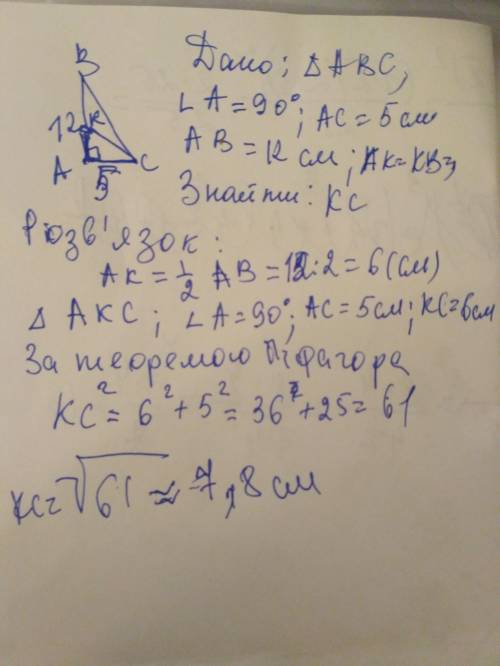 B
12 K
A C
5
Дано: △ABC,
∠A = 90°; AC = 5 см
AB = 12 см; AK = KB
Знайти: KC
Розв'язок:
AK = 1/2 AB = 12:2 = 6 (см)
△ AKC; ∠A = 90°; AC = 5 см; KC = 6 см
За теоремою Піфагора
KC² = 6² + 5² = 36 + 25 = 61
KC = √61 ≈ 7,8 см